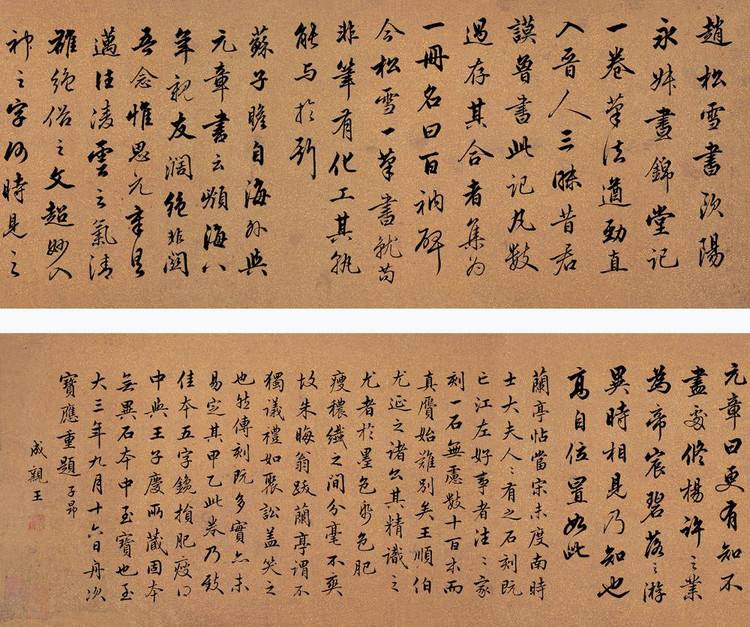 趙松雪書歐陽
永叔晝錦堂記
一卷筆法遒勁直
入晉人三昧昔君
謨魯書此記凡數
過存其合者集為
一冊名曰百衲碑
今松雪一筆書就苟
非筆有化工其孰
能与於斯
蘇子瞻自海外與
元章書云嶺海八
年親友濶絕非関
吾念惟思元章
邁往凌雲之氣清
雄絕俗之文超妙入
神之字何時見之
元章曰更有知不
盡處修楊許之業
為帝宸碧落之游
異時相見乃知也
髙自位置如此
蘭亭帖當宋未度南時
士大夫人々有之石刻既
亡江左好事者注々家
刻一石無慮數十百本而
真贗始難別矣王順伯
尤延之諸公其精識之
尤者於墨色紙色肥
瘦穠纖之間分毫不爽
故朱晦翁跋蘭亭謂不
獨議禮如聚訟盖笑之
也然傳刻既多實亦未
易定其甲乙此卷乃致
佳本五字鑱損肥瘦得
中與王子慶所藏固本
無異石本中至寶也至
大三年九月十六日舟次
寶應重題子昂
成親王